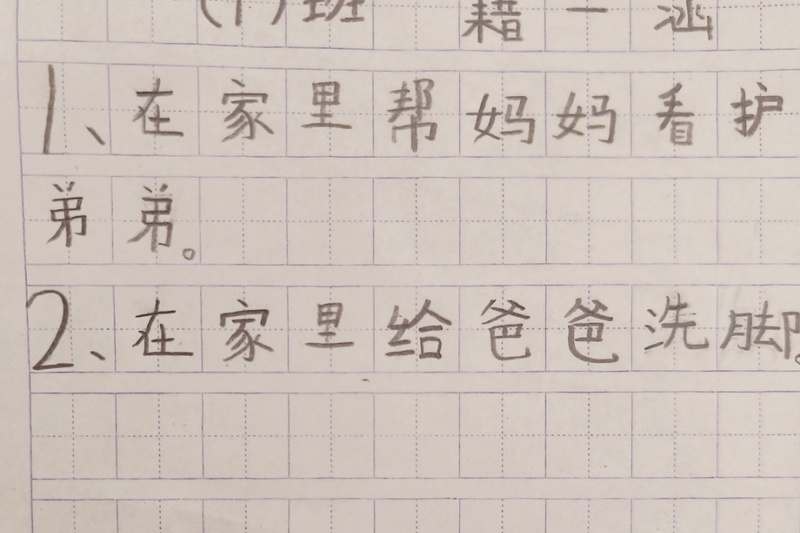 (十)班 籍一涵
1、在家里帮妈妈看护
弟弟。
2、在家里给爸爸洗脚。